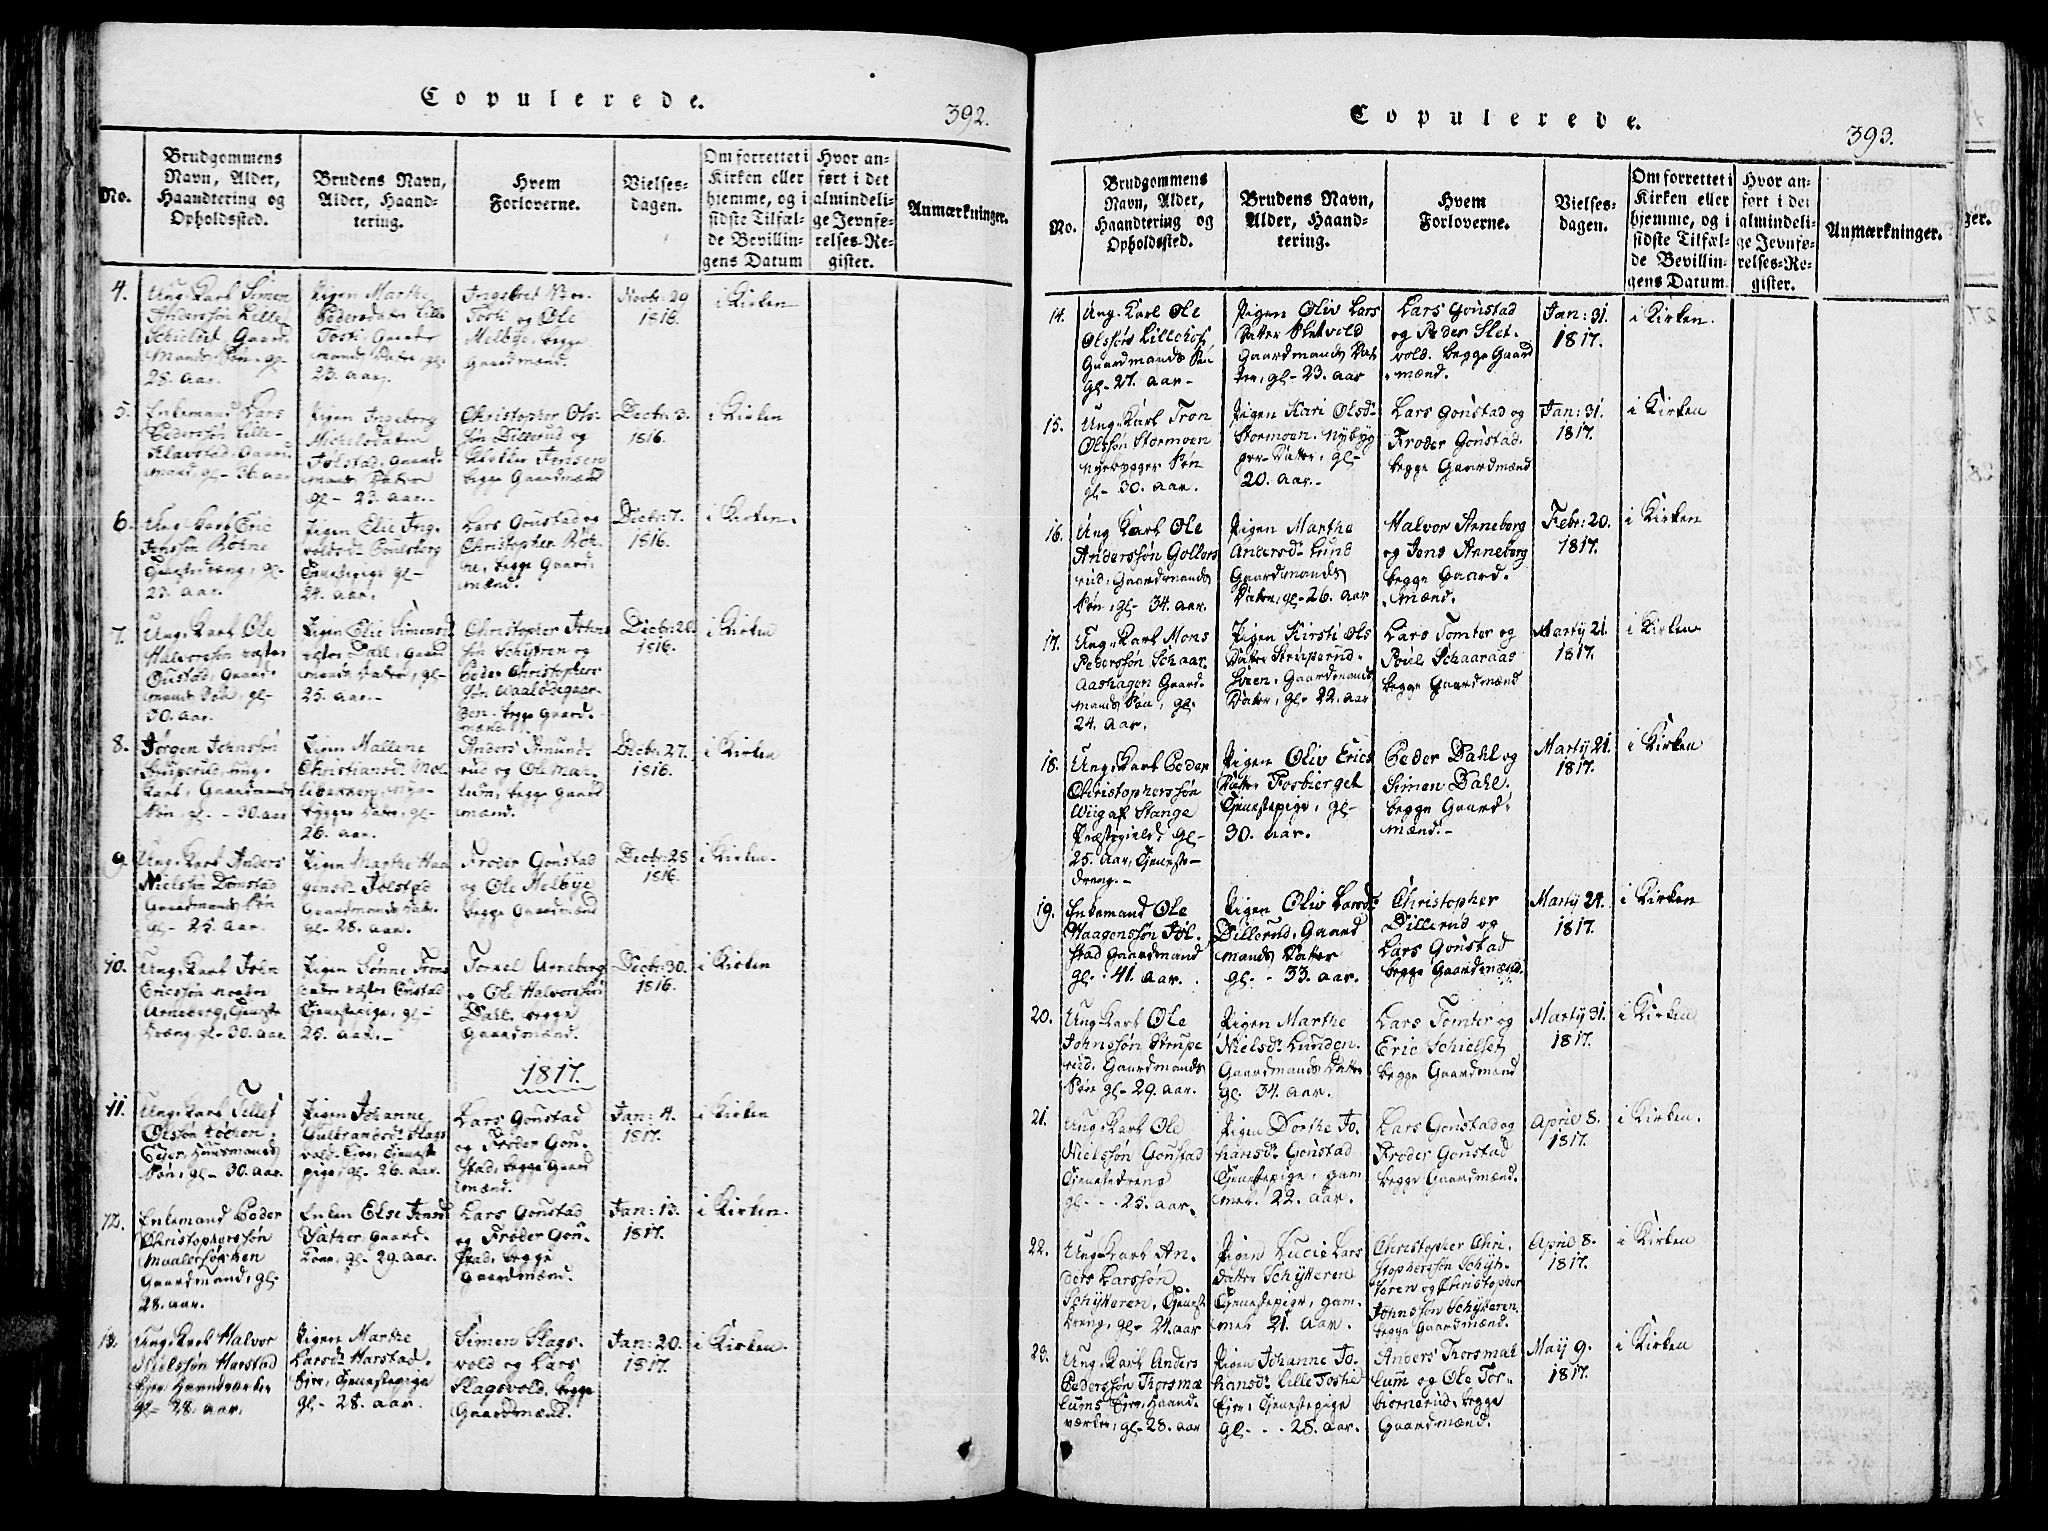 Copulerede.
392.
No.
Brudgommens
Navn, Alder,
Haandtering og
Opholdssted.
Brudens Navn,
Alder, Haand-
tering.
Hvem
Forloverne.
Vielses-
dagen.
Om forrettet i
Kirken eller
hjemme, og i
sidste Tilfæl-
de Bevillin-
gens Datum
Hvor an-
ført i det
almindeli-
ge Jevnfø-
relses-Re-
gister.
Anmærkninger.
4.
Ung Karl Simen
Anderssøn Lille
Gaard
Mands Søn, gl-
28. Aar.
Pigen Marthe
Pedersdatter Lille
Tosti, Gaard-
mands Datter, gl.
23. Aar.
Tosti og Ole
Melbye, begge
Gaardmænd.
Novbr: 29
1816.
i Kirken
5.
Enkemand Lars
Pederssøn Lille-
Gaard-
mand, gl- 36. Aar
Pigen Ingeborg
Michelsdatter
Jølstad, Gaard-
mands Datter
gl- 23. Aar.-
Christopher Ols-
søn Dillerud og
Jensen
begge Gaardmænd
Decbr: 3.
1816.
i Kirken
6.
Ung Karl Eric
Jenssøn Røhne
Tjenestedreng, gl-
23. Aar.
Pigen Elie Ing-
voldsdr
Tjenestepige gl-
24. Aar.
Lars Gonstad og
Christopher Røh-
ne, begge Gaard-
mænd.
Decbr: 7.
1816.
i Kirken.
7.
Ung Karl Ole
Halvorssøn
Gaard-
mands Søn, gl-
30. Aar.
Pigen Elie Simensdr
Dahl, Gaard
mands Datter, gl-
25. Aar.-
Christopher Johns
søn Schytren og
Peder Christophers
søn Waalødegaar-
den. begge Gaard-
mænd.
Decbr: 26.
1816.
i Kirken
8.
Jørgen Johnssøn
Struperud, Ung-
Karl, Gaardmands
Søn, gl. - 30. Aar
Pigen Mallene
Christiansdr
26. Aar.
Anders Amund-
rud og Ole Mæh-
lum, begge Gaard
mænd.
Decbr: 27.
1816.
i Kirken
9
Ung Karl Anders
Nielssøn Domstad
Gaardmands Søn
gl- 25. Aar.
Pigen Marthe Haa
gensdr Jølstad
Gaardmands Datr.
gl- 28. Aar.
Froder Gonstad
og Ole Melbye
begge Gaardmænd
Decbr: 28
1816.
i Kirken.
10.
Ung Karl John
Ericssøn
Arneberg, Tjeneste
dreng, gl- 30. Aar
Pigen Sønne Trons
datter
Tjenestepige, gl-
25. Aar.-
Torkel Arneberg
og Ole Halvorssøn
Dahl, begge
Gaardmænd.
Decbr: 30.
1816.
i Kirken
1817.
11.
Ung Karl Tellef
Olssøn
Eier, Huusmands
Søn, gl- 30. Aar.
Pigen Johanne
Gulbrandsdr Slags
vold Eier, Tjeneste
pige, gl- 26. Aar.
Lars Gonstad
og Froder Gon-
stad, begge Gaard
mænd.
Jan: 4.
1817.
i Kirken
12.
Enkemand Peder
Christopherssøn
Gaardmand, gl-
28. Aar.
Enken Else Jensd
Datter Gaard-
Kone, gl- 29. Aar.
Lars Gonstad
og Froder Gon-
stad, begge
Gaardmænd.
Jan: 13.
1817.
i Kirken.
13.
Ung Karl Halvor
Nielssøn Harstad
Eier, Haandværker
gl- 28. Aar.
Pigen Marthe
Larsdr Harstad.
Eier, Tjenestepige
gl- 28. Aar.
Simen Slags-
vold og Lars
Slagsvold, begge
Gaardmænd.
Jan: 20.
1817.
i Kirken.
Copulerede.
393.
No.
Brudgommens
Navn, Alder,
Haandtering og
Opholdssted.
Brudens Navn,
Alder, Haand-
tering.
Hvem
Forloverne.
Vielses-
dagen.
Om forrettet i
Kirken eller
hjemme, og i
sidste Tilfæl-
de Bevillin-
gens Datum.
Hvor an-
ført i det
almindeli-
ge Jevnfø-
relses-Re-
gister.
Anmærkninger.
14.
Ung Karl Ole
Olssøn Lillehof,
Gaardmands Søn
gl- 27. Aar-
Pigen Oliv Lars
Datter Sletvold
Gaardmands Dat
ter, gl- 23. Aar
Lars Gonstad
og Peder Slet-
vold. begge Gaard
mænd.
Jan: 31.
1817.
i Kirken.
15.
Ung Karl Tron
Olssøn Stormoen
Nybygger Søn
gl- 30. Aar.
Pigen Kari Olsdr
Stormoen. Nybyg
ger-Datter, gl-
20. Aar.-
Lars Gonstad og
Froder Gonstad.
begge Gaardmænd
Jan: 31.
1817.
i Kirken
16.
Ung Karl Ole
Anderssøn Gollers
rud, Gaardmands
Søn, gl- 34. Aar.
Pigen Marthe
Andersdr Lund
Gaardmands
Datter, gl- 26. Aar
Halvor Arneberg
og Jens Arneberg
begge Gaard-
mænd.
Febr: 20.
1817.
i Kirken
17.
Ung Karl Mons
Pederssøn Schaar-
aashagen Gaard-
mands Søn, gl-
24. Aar.
Pigen Kirsti Ols
Datter Struperud-
Gaardmands
Datter, gl- 22. Aar
Lars Tomter og
Poul Schaaraas
begge Gaardmænd
Martij 21.
1817.
i Kirken
18.
Ung Karl Peder
Christopherssøn
Wiig af Stange
Præstegield, gl-
25. Aar, Tjeneste-
dreng.-
Pigen Oliv Erics
Datter Fosbierget
Tjenestepige, gl-
30. Aar.
Peder Dahl og
Simen Dahl.
begge Gaard-
mænd.-
Martij 21.
1817.
i Kirken
19.
Enkemand Ole
Haagenssøn Jøl-
stad Gaardmand
gl. - 41. Aar.
Pigen Oliv Larsdr
Dillerud, Gaard
mands Datter
gl. - 33. Aar.
Christopher
Dillerud og
Lars Gonstad
begge Gaardmænd.
Martij 24.
1817.
i Kirken
20.
Ung Karl Ole
Johnssøn Strupe
rud, Gaardmands
Søn gl- 29. Aar.
Pigen Marthe
Nielsdr Lunden.
Gaardmands Datter
gl. 34. Aar.
Lars Tomter og
Eric Schielset
begge Gaardmænd
Martij 31.
1817.
i Kirken
21.
Ung Karl Ole
Nielssøn Gonstad
Tjenestedreng
gl- - - 25. Aar.
Pigen Dorthe Jo-
hansdr Gonstad
Tjenestepige, gam
mel. 22. Aar.
Lars Gonstad og
Froder Gonstad
begge Gaardmænd.
April 8.
1817.
i Kirken.
22.
Ung Karl An-
ders Larssøn
Schytteren, Tjeneste
dreng, gl- 24. Aar
Pigen Lucie Lars
datter Schytteren
Tjenestepige, gam-
mel 21. Aar.
Christopher Chri-
stopherssøn Schyt-
teren og Christopher
Johnssøn Schytteren
begge Gaardmænd.
April 8.
1817.
i Kirken
23.
Ung Karl Anders
Pederssøn Thorsmæ
lums Eier, Haand-
værker, gl- 28. Aar
Pigen Johanne Jo-
hansdr Lille Tostie
Eier, Tjenestepige
gl. - - 28. Aar.
Anders Thorsmæh
lum og Ole Tor-
biørnrud, begge
Gaardmænd.
Maij 9.
1817.
i Kirken